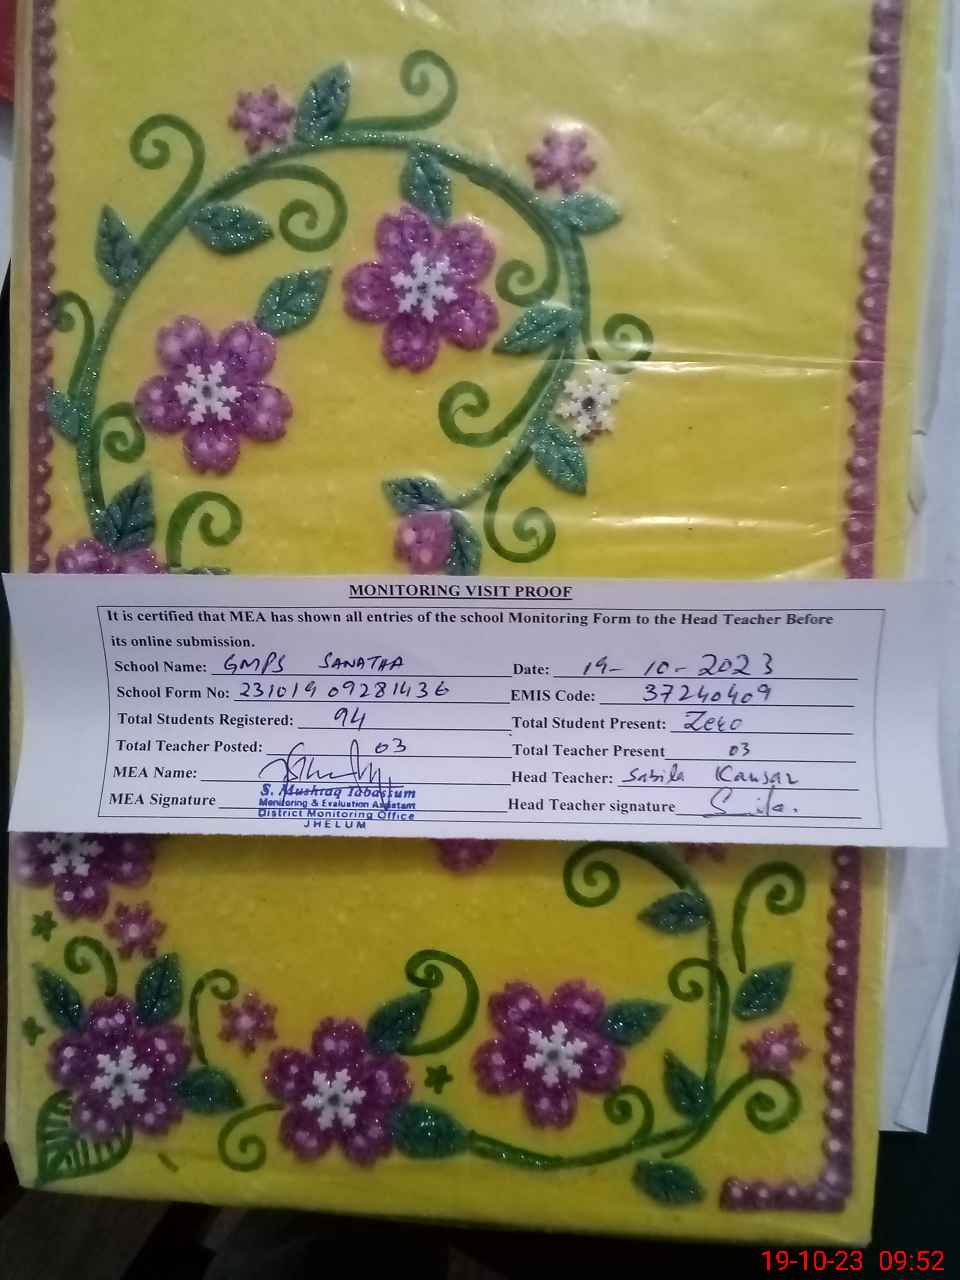 MONITORING VISIT PROOF
It is certified that MEA has shown all entries of the school Monitoring Form to the Head Teacher Before
its online submission.
School Name: GMPS SANATHA Date: 19-10-2023
School Form No: 23101909281436 EMIS Code: 37240409
Total Students Registered: 94 Total Student Present: Zero
Total Teacher Posted: 03 Total Teacher Present 03
MEA Name: Head Teacher: Sabila Kausar
MEA Signature Head Teacher signature
S. Mushtaq Tabassum
Monitoring & Evaluation Assistant
District Monitoring Office
JHELUM
19-10-23 09:52